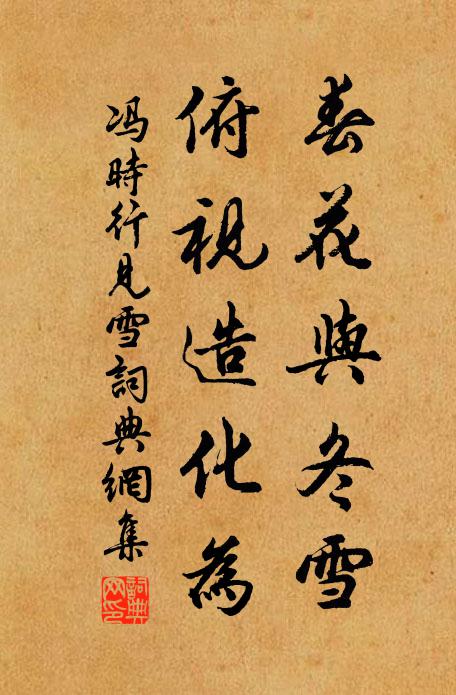 春花與冬雪
俯視造化為
馮時行見雪詞典網集
詞典
网印